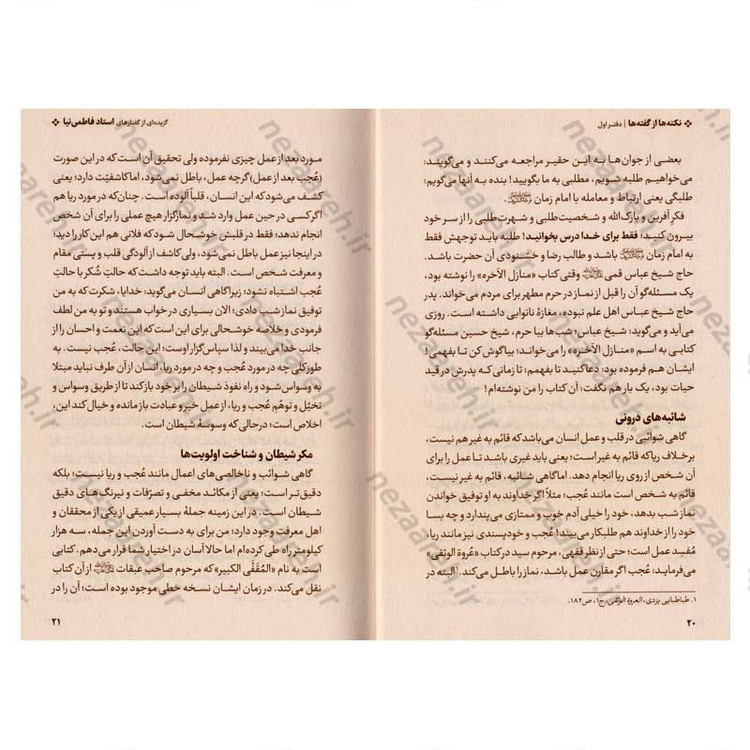 ❖ نکته‌ها از گفته‌ها | دفتر اول
بعضی از جوان‌ها به این حقیر مراجعه می‌کنند و می‌گویند:
می‌خواهیم طلبه شویم، مطلبی به ما بگویید! بنده به آنها می‌گویم:
طلبگی یعنی ارتباط و معامله با امام زمان
فکرِ آفرین و بارک‌الله و شخصیت‌طلبی و شهرت‌طلبی را از سر خود
بیرون کنید؛ فقط برای خدا درس بخوانید! طلبه باید توجهش فقط
به امام زمان باشد و طالب رضا و خشنودی آن حضرت باشد.
حاج شیخ عباس قمی وقتی کتاب «منازل الآخره» را نوشته بود،
یک مسئله‌گو آن را قبل از نماز در حرم مطهر برای مردم می‌خواند. پدر
حاج شیخ عباس اهل علم نبوده، مغازهٔ نانوایی داشته است. روزی
می‌آید و می‌گوید: شیخ عباس؛ شب‌ها بیا حرم، شیخ حسین مسئله‌گو
کتابی به اسم «منازل الآخره» را می‌خواند؛ بیا گوش کن تا بفهمی!
ایشان هم فرموده بود: دعا کنید تا بفهمم؛ تا زمانی که پدرش در قید
حیات بود، یک بار هم نگفت: آن کتاب را من نوشته‌ام!
شائبه‌های درونی
گاهی شوائبی در قلب و عمل انسان می‌باشد که قائم به غیر هم نیست،
برخلاف ریا که قائم به غیر است؛ یعنی باید غیری باشد تا عمل را برای
آن شخص از روی ریا انجام دهد. اما گاهی شائبه، قائم به غیر نیست،
قائم به شخص است مانند عُجب؛ مثلاً اگر خداوند به او توفیق خواندن
نماز شب بدهد، خود را خیلی آدم خوب و ممتازی می‌پندارد و چه بسا
خود را از خداوند هم طلبکار می‌بیند! عُجب و خودپسندی نیز مانند ریا،
مُفسِد عمل است؛ حتی از نظر فقهی، مرحوم سید در کتاب «عُروة الوثقی»
می‌فرماید: عُجب اگر مقارن عمل باشد، نماز را باطل می‌کند.۱ البته در
۱. طباطبایی یزدی، العروة الوثقی، ج۱، ص۱۸۲.
۲۰
گزیده‌ای از گفتارهای استاد فاطمی‌نیا ❖
مورد بعد از عمل چیزی نفرموده ولی تحقیق آن است که در این صورت
(عُجب بعد از عمل) گرچه عمل، باطل نمی‌شود، اما کاشفیّت دارد؛ یعنی
کشف می‌شود که این انسان، قلباً آلوده است. چنان‌که در مورد ریا هم
اگر کسی در حین عمل وارد شد و نمازگزار هیچ عملی را برای آن شخص
انجام ندهد؛ فقط در قلبش خوشحال شود که فلانی هم این کار را دید؛
در اینجا نیز عمل باطل نمی‌شود، ولی کاشف از آلودگی قلب و پستی مقام
و معرفت شخص است. البته باید توجه داشت که حالتِ شُکر با حالتِ
عُجب اشتباه نشود؛ زیرا گاهی انسان می‌گوید: خدایا، شکرت که به من
توفیق نماز شب دادی؛ الان بسیاری در خواب هستند و تو به من لطف
فرمودی و خلاصه خوشحالی برای این است که این نعمت و احسان را از
جانب خدا می‌بیند و لذا سپاس‌گزار اوست؛ این حالت، عُجب نیست. به
طور کلی چه در مورد عُجب و چه در مورد ریا، انسان از آن طرف نباید مبتلا
به وسواس شود و راه نفوذ شیطان را بر خود باز کند تا از طریق وسواس و
تخیّل و توهّم عُجب و ریا، از عمل خیر و عبادت باز مانده و خیال کند این،
اخلاص است؛ درحالی که وسوسهٔ شیطان است.
مکر شیطان و شناخت اولویت‌ها
گاهی شوائب و ناخالصی‌های اعمال مانند عُجب و ریا نیست؛ بلکه
دقیق‌تر است؛ یعنی از مکائد مخفی و تصرّفات و نیرنگ‌های دقیق
شیطان است. در این زمینه جملهٔ بسیار عمیقی از یکی از محققان و
اهل معرفت وجود دارد؛ من برای به دست آوردن این جمله، سه هزار
کیلومتر راه طی کرده‌ام اما حالا آسان در اختیار شما قرار می‌دهم. کتابی
است به نام «المُقَفَّی الکبیر» که مرحوم صاحب عبقات از آن کتاب
نقل می‌کند. در زمان ایشان نسخه خطی موجود بوده است؛ آن را در
۲۱
nezaareh.ir